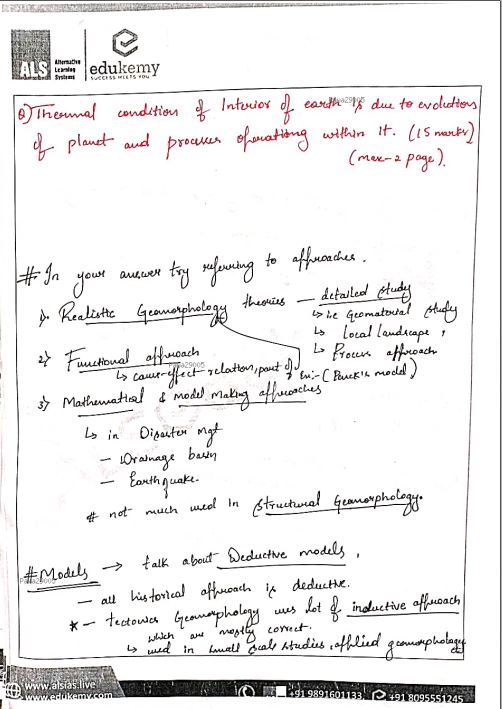 ALS
Alternative
Learning
Systems
edukemy
SUCCESS MEETS YOU
Q) Thermal condition of Interior of earth is due to evolution
of planet and processes operating within it. (15 marks)
(max-2 page).
# In your answer try referring to approaches.
1). Realistic Geomorphology theories — detailed study
↳ i.e Geomaterial study
↳ Local landscape,
↳ Process approach
2) Functional approach
↳ cause-effect relation, part of
Ex:- (Penck's model)
3) Mathematical & model making approaches
↳ in Disaster mgt
— Drainage basin
— Earthquake.
# not much used in Structural Geomorphology.
# Models → talk about Deductive models,
— all historical approach is deductive.
* — tectonics Geomorphology uses lot of inductive approach
which are mostly correct.
↳ used in small scale studies, applied geomorphology etc
www.alsias.live
www.edukemy.com
+91 9891601133,
+91 8095551245